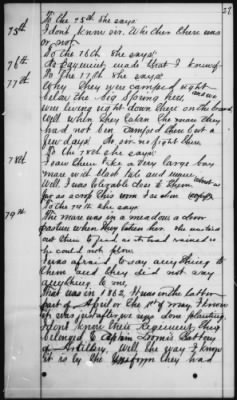 27.
To the 75th she says
75th I dont know sir. Whether there was
or not
To the 76th she says
76th No payment made that I know of
To the 77th she says
77th Why they were camped right
below the big Spring here, and we
were living right down there on the branch
Well when they taken the mare they
had not ben camped there but a
few days. No sir no fight there
To the 78th she says
78th I saw them take a very large bay
mare with black tale and mane
Well I was tolerable close to them, about as
far as across this room
To the 79th she says
79th The mare was in a meadow a clover
pasture when they taken her. She was turned
out there to feed as it had rained so
he could not plow
I was afraid to say any thing to
them and they did not say
any thing to me.
That was in 1862. It was in the latter
part of April or the 1st of May. I know
it was just after we was done planting.
I dont know their Regiment, they
belonged to Captain Loomis Battery
of Artillery, Well the way I know
it is by the uniform they had